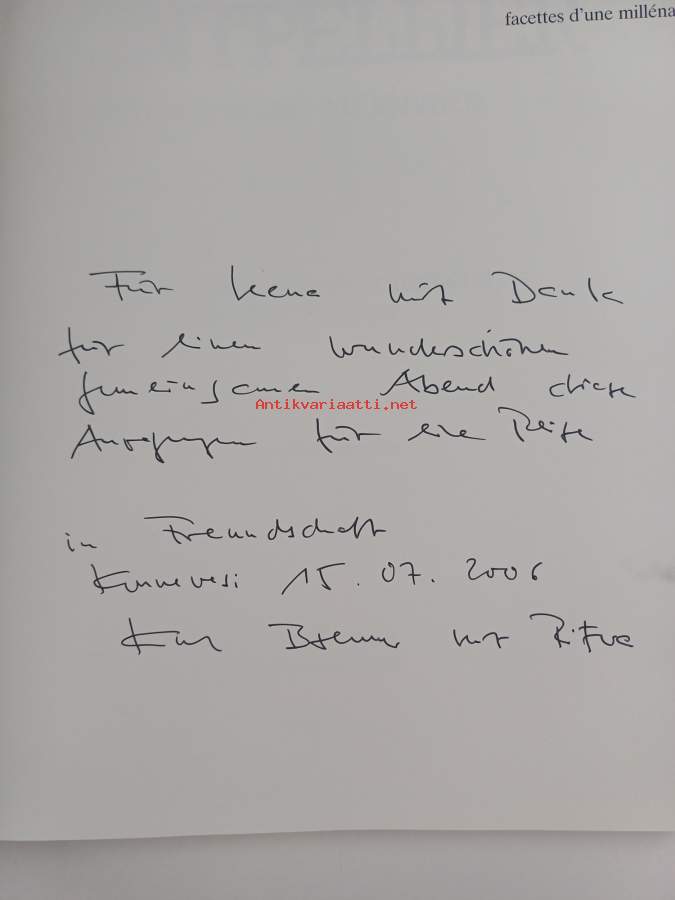 facettes d'une milléna
Für Leena mit Dank
für einen wunderschönen
gemeinsamen Abend diese
Antikvariaatti.net
Anregungen für eine Reise
in Freundschaft
Konnevesi 15.07.2006
mit Ritva